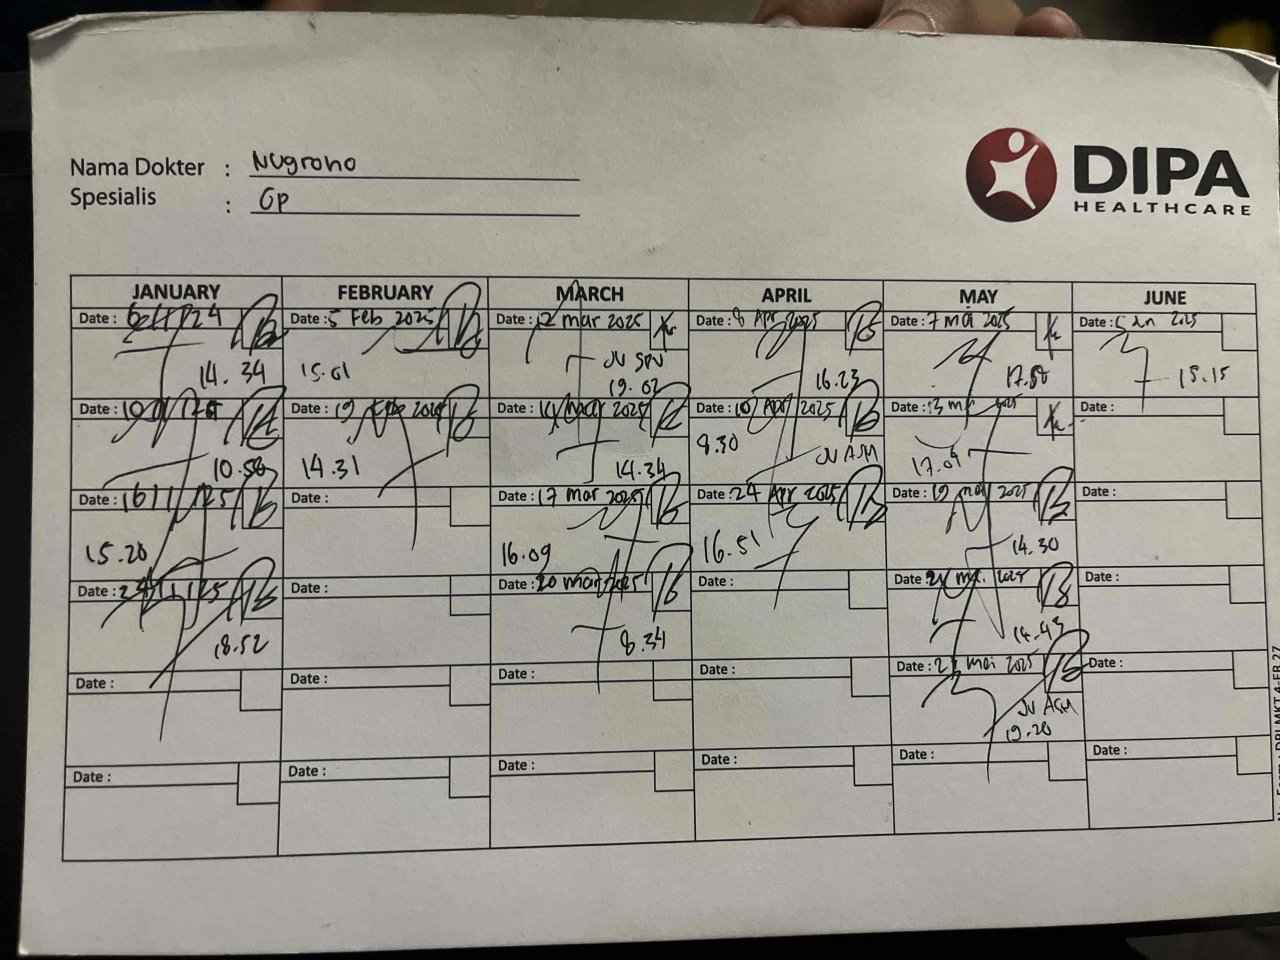 Nama Dokter : Nugroho
Spesialis : Gp
DIPA
HEALTHCARE
JANUARY FEBRUARY MARCH APRIL MAY JUNE
Date : Date : 5 Feb 2025 Date : 12 mar 2025 Date : 8 Apr 2025 Date : 7 mei 2025 Date : 2025
JV SPV
14.34 15.01 19.02 16.23 15.15
Date : Date : 19 Date : mar 2025 Date : 10 Apr 2025 Date : 13 2025 Date :
8.30
10.56 14.31 14.34 JV ASM 17.09
Date : 16/1/25 Date : Date : 17 mar 2025 Date : 24 Apr 2025 Date : 19 mei 2025 Date :
15.20 16.09 16.51 14.30
Date : Date : Date : 20 mar 2025 Date : Date : 2025 Date :
18.52 8.34 14.43
Date : Date : Date : Date : Date : mei 2025 Date :
JV ASM
19.20
Date : Date : Date : Date : Date : Date :